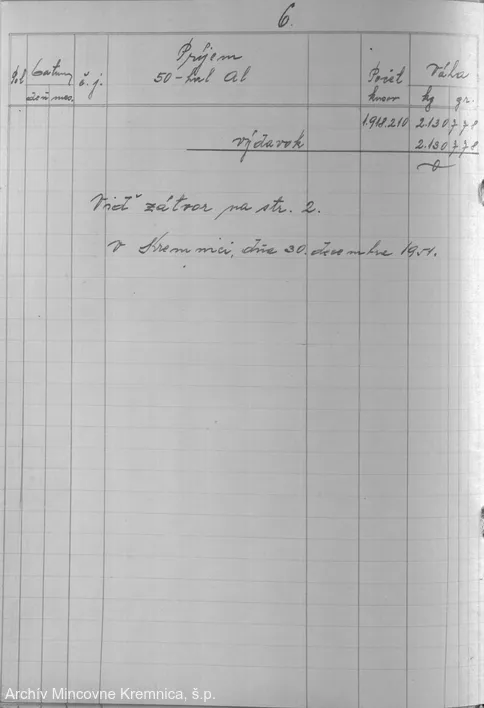 6.
Pol Datum č. j. Príjem Počet Váha
deň mes. 50-hal Al kusov kg gr.
1,918.210 2.130 778
výdavok 2.130 778
0
Viď zátvor na str. 2.
V Kremnici, dňa 30. decembra 1951.
Archív Mincovne Kremnica, š.p.